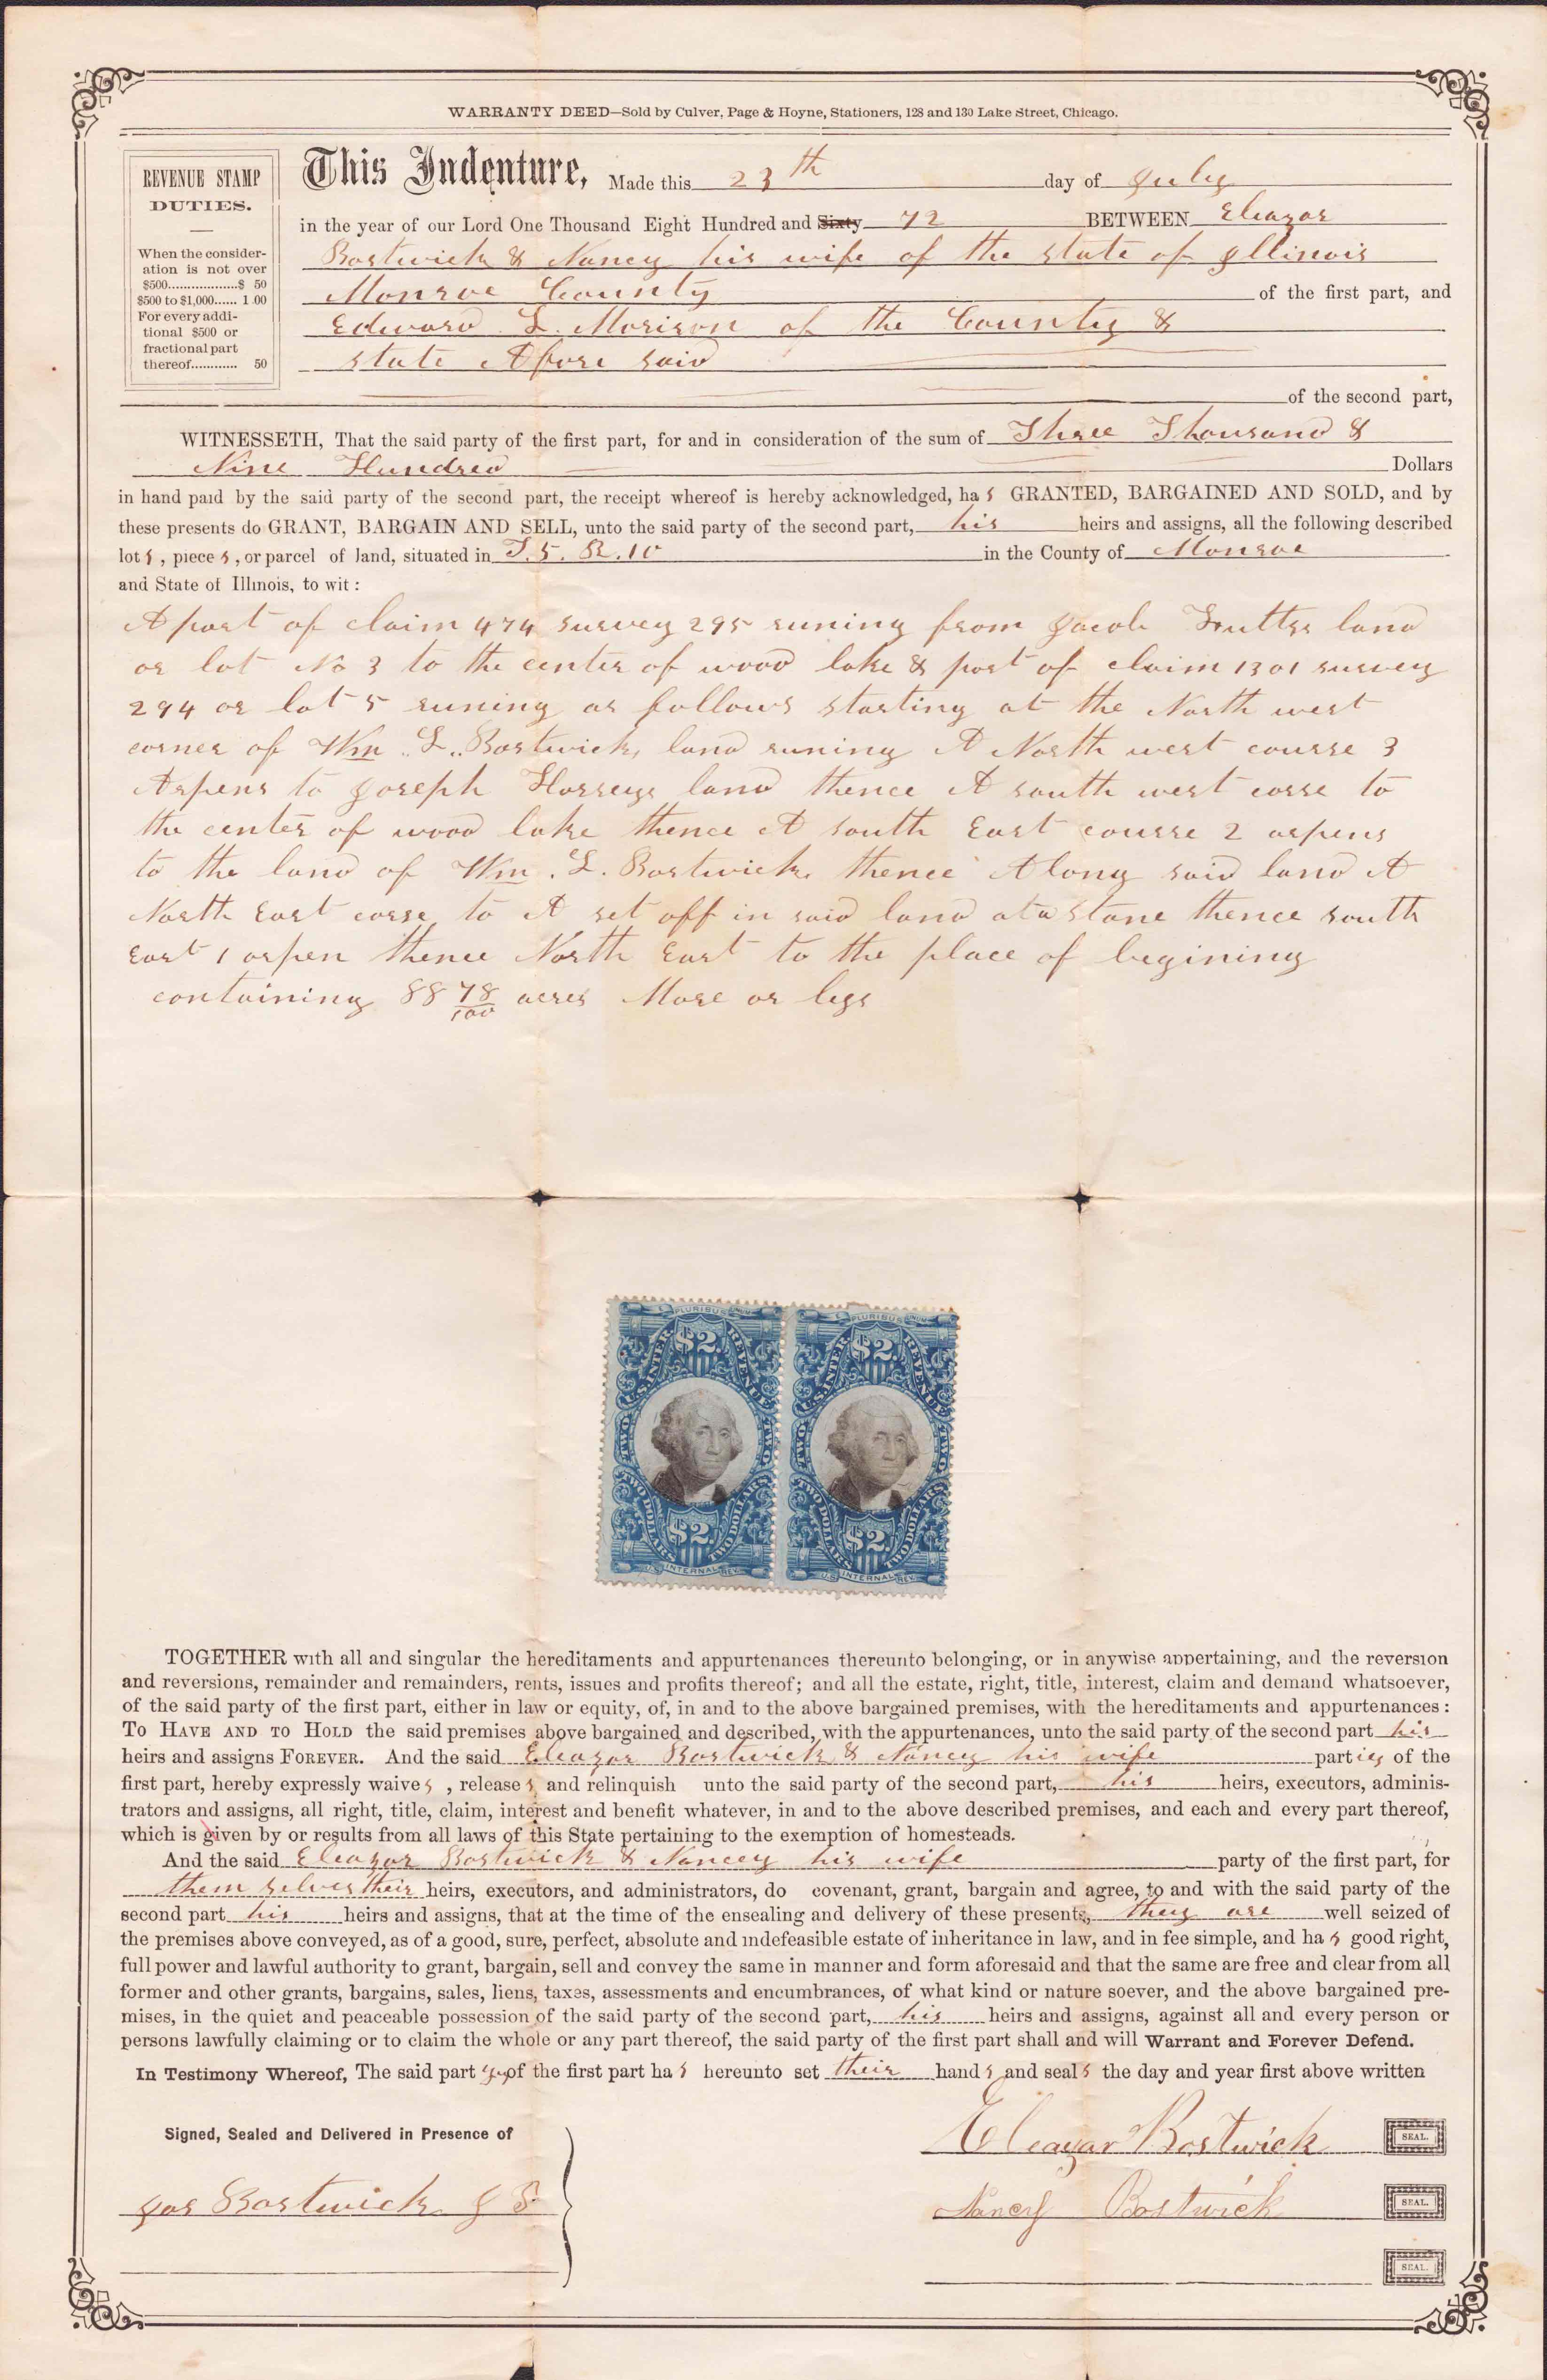 WARRANTY DEED—Sold by Culver, Page & Hoyne, Stationers, 128 and 130 Lake Street, Chicago.
REVENUE STAMP
DUTIES.
When the consider-
ation is not over
$500..................$ 50
$500 to $1,000...... 1.00
For every addi-
tional $500 or
fractional part
thereof............ 50
This Indenture, Made this 23th day of July
in the year of our Lord One Thousand Eight Hundred and Sixty 72 BETWEEN Eleazar
Bostwick & Nancy his wife of the state of Illinois
Monroe County of the first part, and
Edward L. Morison of the County &
state Afore said
of the second part,
WITNESSETH, That the said party of the first part, for and in consideration of the sum of Three Thousand &
Nine Hundred Dollars
in hand paid by the said party of the second part, the receipt whereof is hereby acknowledged, has GRANTED, BARGAINED AND SOLD, and by
these presents do GRANT, BARGAIN AND SELL, unto the said party of the second part, his heirs and assigns, all the following described
lots, pieces, or parcel of land, situated in T.5. R.10 in the County of Monroe
and State of Illinois, to wit:
A part of claim 474 survey 295 runing from Jacob land
or lot No 3 to the center of wood lake & part of claim 1301 survey
294 or lot 5 runing as follows starting at the North west
corner of Wm. L. Bostwick, land runing A North west course 3
Arpens to Joseph land thence A south west corse to
the center of wood lake thence A south East course 2 arpens
to the land of Wm. L. Bostwick thence Along said land A
North East corse to A set off in said land at a stone thence south
East 1 arpen thence North East to the place of begining
containing 88 78/100 acres More or less
E PLURIBUS UNUM
$2.
U.S. INTER. REVENUE
TWO TWO
TWO DOLLARS TWO DOLLARS
$2.
U.S. INTERNAL REV.
E PLURIBUS UNUM
$2.
U.S. INTER. REVENUE
TWO TWO
TWO DOLLARS TWO DOLLARS
$2.
U.S. INTERNAL REV.
TOGETHER with all and singular the hereditaments and appurtenances thereunto belonging, or in anywise appertaining, and the reversion
and reversions, remainder and remainders, rents, issues and profits thereof; and all the estate, right, title, interest, claim and demand whatsoever,
of the said party of the first part, either in law or equity, of, in and to the above bargained premises, with the hereditaments and appurtenances:
TO HAVE AND TO HOLD the said premises above bargained and described, with the appurtenances, unto the said party of the second part his
heirs and assigns FOREVER. And the said Eleazar Bostwick & Nancy his wife parties of the
first part, hereby expressly waives, releases and relinquish unto the said party of the second part, his heirs, executors, adminis-
trators and assigns, all right, title, claim, interest and benefit whatever, in and to the above described premises, and each and every part thereof,
which is given by or results from all laws of this State pertaining to the exemption of homesteads.
And the said Eleazar Bostwick & Nancey his wife party of the first part, for
them selves their heirs, executors, and administrators, do covenant, grant, bargain and agree, to and with the said party of the
second part his heirs and assigns, that at the time of the ensealing and delivery of these presents, they are well seized of
the premises above conveyed, as of a good, sure, perfect, absolute and indefeasible estate of inheritance in law, and in fee simple, and has good right,
full power and lawful authority to grant, bargain, sell and convey the same in manner and form aforesaid and that the same are free and clear from all
former and other grants, bargains, sales, liens, taxes, assessments and encumbrances, of what kind or nature soever, and the above bargained pre-
mises, in the quiet and peaceable possession of the said party of the second part, his heirs and assigns, against all and every person or
persons lawfully claiming or to claim the whole or any part thereof, the said party of the first part shall and will Warrant and Forever Defend.
In Testimony Whereof, The said part of the first part has hereunto set their hands and seals the day and year first above written
Signed, Sealed and Delivered in Presence of
Eleazar Bostwick SEAL.
Jas Bostwick J P
Nancy Bostwick SEAL.
SEAL.